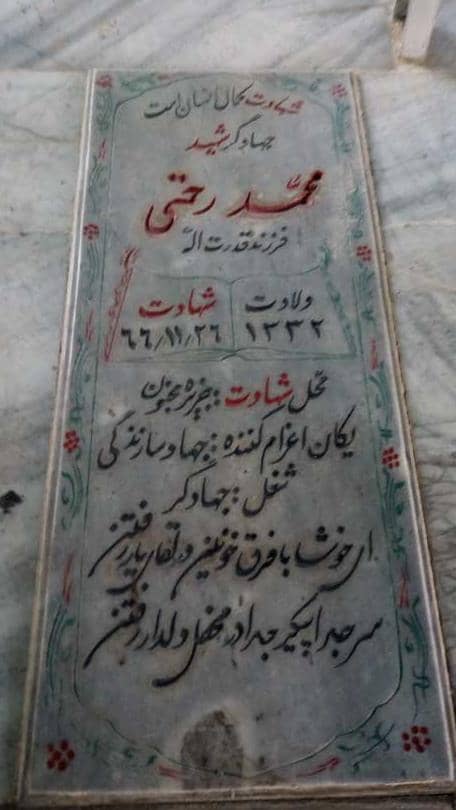 شهادت کمال انسان است
جهادگر شهید
محمد رحمتی
فرزند قدرت اله
ولادت
۱۳۳۲
شهادت
۶۶/۱۱/۲۶
محل شهادت: جزیره مجنون
یگان اعزام کننده: جهاد سازندگی
شغل: جهادگر
ای خوشا با فرق خونین در لقای یار رفتن
سر جدا پیکر جدا در محفل دلدار رفتن